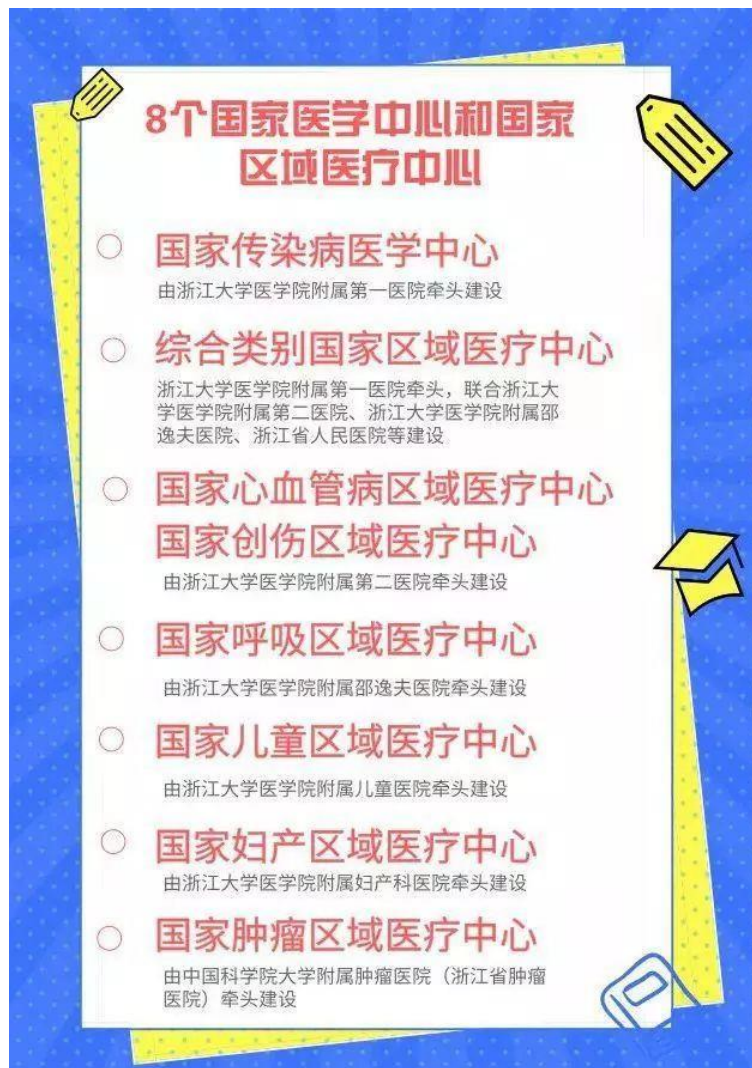 8个国家医学中心和国家
区域医疗中心
国家传染病医学中心
由浙江大学医学院附属第一医院牵头建设
综合类别国家区域医疗中心
浙江大学医学院附属第一医院牵头，联合浙江大
学医学院附属第二医院、浙江大学医学院附属邵
逸夫医院、浙江省人民医院等建设
国家心血管病区域医疗中心
国家创伤区域医疗中心
由浙江大学医学院附属第二医院牵头建设
国家呼吸区域医疗中心
由浙江大学医学院附属邵逸夫医院牵头建设
国家儿童区域医疗中心
由浙江大学医学院附属儿童医院牵头建设
国家妇产区域医疗中心
由浙江大学医学院附属妇产科医院牵头建设
国家肿瘤区域医疗中心
由中国科学院大学附属肿瘤医院（浙江省肿瘤
医院）牵头建设